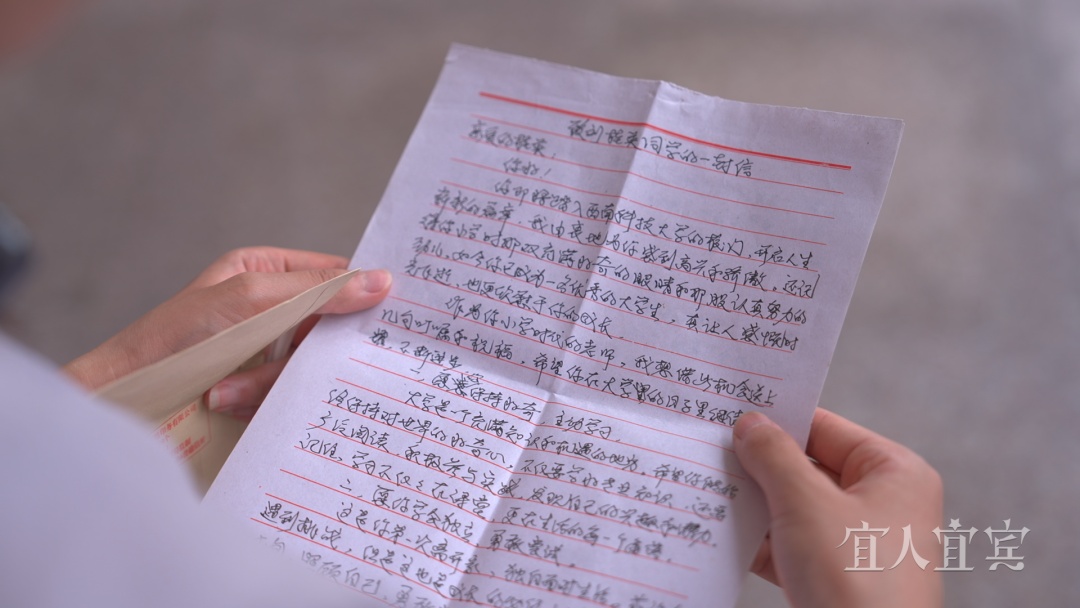 致刘晓英同学的一封信
亲爱的晓英：
你好！
你即将踏入西南科技大学的校门，开启人生
新的篇章，我由衷地为你感到高兴和骄傲。还记
得你小学时那双充满好奇的眼睛和那股认真努力的
劲儿，如今你已成为一名优秀的大学生，真让人感慨时
光飞逝，也更欣慰于你的成长。
作为你小学时代的老师，我想借此机会送上
几句叮嘱和祝福，希望你在大学里的日子里继续
不断进步
一、要保持好奇，主动学习。
大学是个充满知识和机遇的地方，希望你继续
保持对世界的好奇心，不仅要学好书本知识，还要
广泛阅读，积极参与实践，发现自己的兴趣和潜力。
记住，学习不仅仅在课堂，更在生活的每一个角落。
二、要你学会独立，勇敢尝试。
这是你第一次离开家，独自面对生活，
遇到挑战，但这也是成长的
自己，勇敢
宜人宜宾